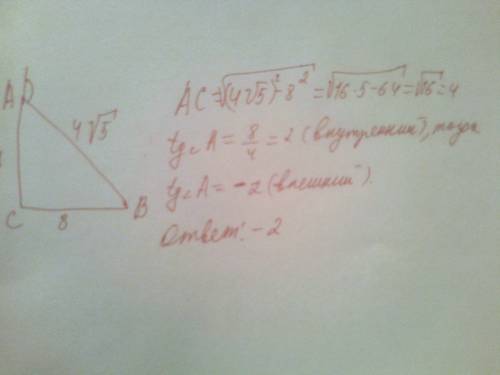 A
4√5
C
8
B
AC = √(4√5)² - 8² = √16·5-64 = √16 = 4
tg∠A = 8/4 = 2 (внутренний), тогда
tg∠A = -2 (внешний).
Ответ: -2